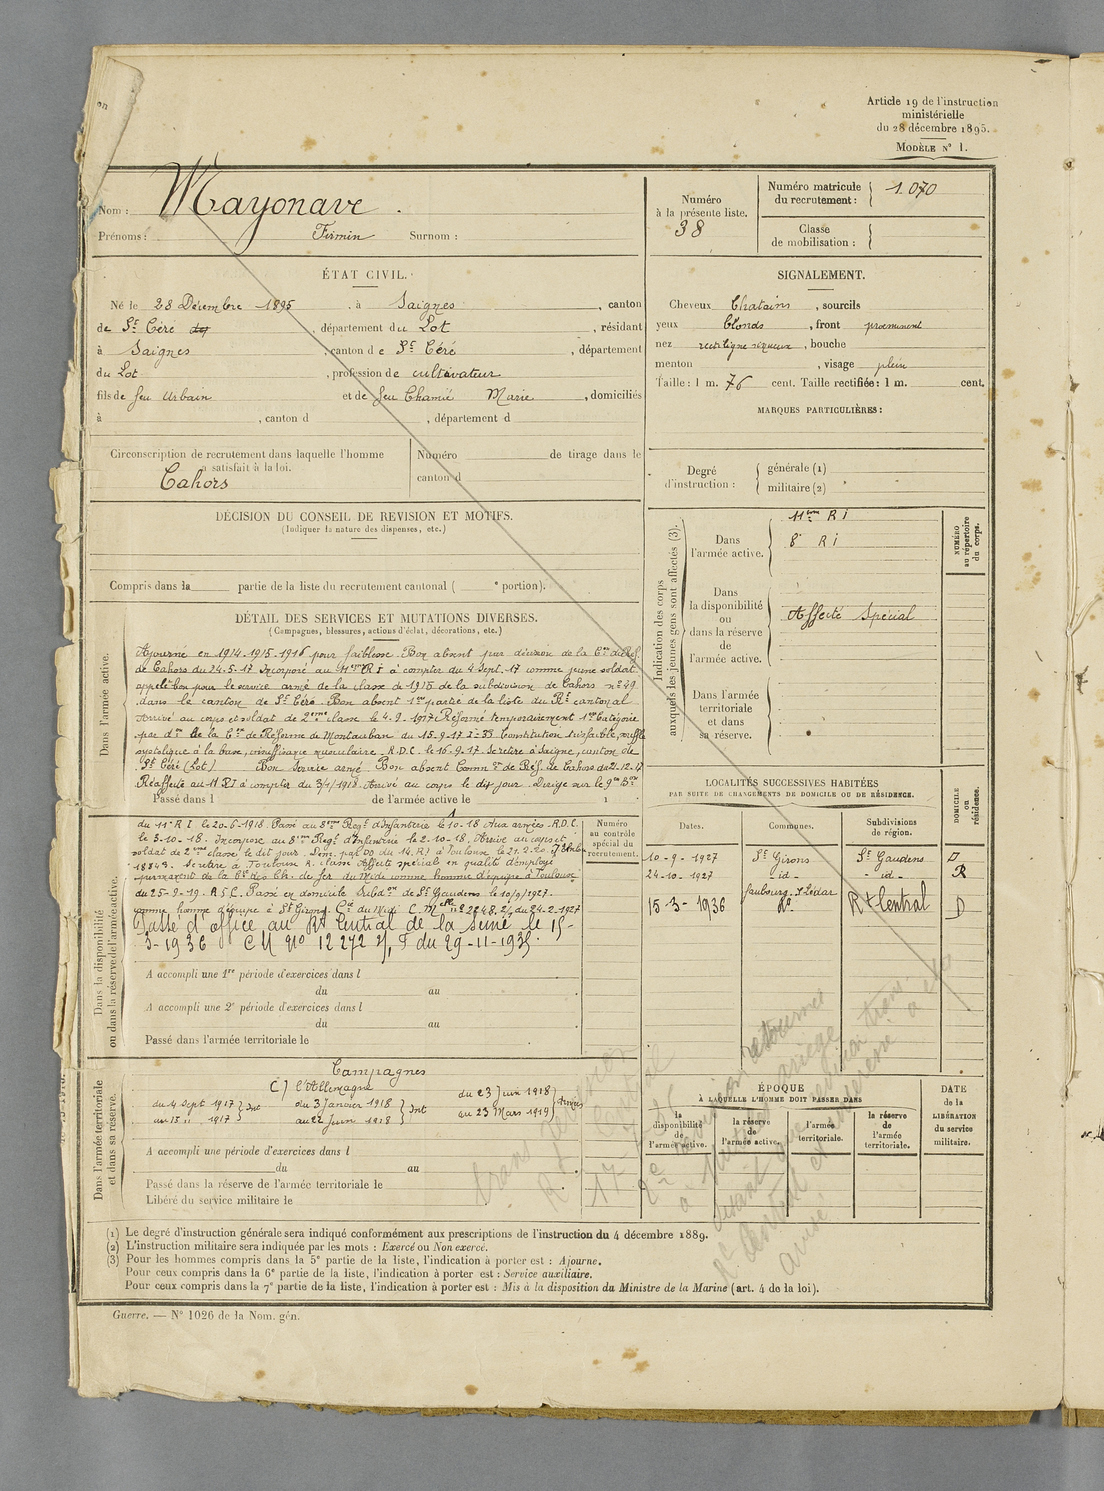 Article 19 de l'instruction
ministérielle
du 28 décembre 1895.
MODÈLE N° 1.
Nom : Mayonave .
Prénoms : Firmin Surnom :
Numéro
à la présente liste.
38
Numéro matricule
du recrutement : 1.070
Classe
de mobilisation :
ÉTAT CIVIL.
Né le 28 Décembre 1895 , à Saignes , canton
de St Céré , département du Lot , résidant
à Saignes , canton de St Céré , département
du Lot , profession de cultivateur
fils de feu Urbain et de feu Chamié Marie , domiciliés
à , canton d , département d
SIGNALEMENT.
Cheveux Chatains , sourcils
yeux blonds , front proeminent
nez rectiligne , bouche
menton , visage plein
Taille : 1 m. 76 cent. Taille rectifiée : 1 m. cent.
MARQUES PARTICULIÈRES :
Circonscription de recrutement dans laquelle l'homme
a satisfait à la loi.
Cahors
Numéro de tirage dans le
canton d
Degré
d'instruction :
générale (1)
militaire (2)
DÉCISION DU CONSEIL DE REVISION ET MOTIFS.
(Indiquer la nature des dispenses, etc.)
Compris dans la partie de la liste du recrutement cantonal ( ° portion).
Indication des corps
auxquels les jeunes gens sont affectés (3).
Dans
l'armée active.
11eme R I
8e R I
Dans
la disponibilité
ou
dans la réserve
de
l'armée active.
Affecté Spécial
Dans l'armée
territoriale
et dans
sa réserve.
NUMÉRO
au répertoire
du corps.
DÉTAIL DES SERVICES ET MUTATIONS DIVERSES.
(Campagnes, blessures, actions d'éclat, décorations, etc.)
Dans l'armée active.
Ajourné en 1914-1915-1916 pour faiblesse. Bon absent par décision de la Con de Réf
de Cahors du 24.5.17 Incorporé au 11eme R I à compter du 4 Sept. 17 comme jeune soldat
appelé bon pour le service armé de la classe de 1915 de la subdivision de Cahors n° 49
dans le canton de St Céré. Bon absent 1ere partie de la liste du Rt cantonal
Arrivé au corps et soldat de 2eme classe le 4.9.1917 Réformé temporairement 1ere Catégorie
par don de la Con de Réforme de Montauban du 15-9-17 Constitution
systolique à la base, insuffisance musculaire. R.D.C. le 16-9-17. Se retire à Saigne, canton de
St Céré (Lot) Bon Service armé Bon absent Comm on de Réf. de Cahors du 21-12-17
Réaffecté au 11 RI à compter du 3/1/1918. Arrivé au corps le dit jour. Dirigé sur le 9me Bon
Passé dans l de l'armée active le 1
Dans la disponibilité
ou dans la réserve de l'armée active.
du 11e R I le 20-6-1918. Passé au 8eme Regt d'Infanterie le 10-18 Aux armées. R.D.C.
le 3-10-18. Incorporé au 8eme Regt d'Infanterie le 2-10-18, Arrivé au corps et
soldat de 2eme classe le dit jour. Dem. par DD du 14 RI à Toulouse le 21-9-20
18843. Se retire à Toulouse R. classé Affecté spécial en qualité d'employé
permanent de la Cie des Ch. de fer du Midi comme homme d'équipe à Toulouse
du 25-9-19. R.S.C. Passé en domicile Subdon de St Gaudens le 10/9/1927.
comme homme d'équipe à St Girons Cie du Midi C. Mlle 22248 du 24-2-1927
Passé d'office au Rt Central de la Seine le 15-
3-1936 C M n° 12272 du 29-11-1935.
A accompli une 1re période d'exercices dans l
du au
A accompli une 2e période d'exercices dans l
du au
Passé dans l'armée territoriale le
Numéro
au contrôle
spécial du
recrutement.
LOCALITÉS SUCCESSIVES HABITÉES
PAR SUITE DE CHANGEMENTS DE DOMICILE OU DE RÉSIDENCE.
Dates. Communes. Subdivisions
de région.
DOMICILE
ou
résidence.
10-9-1927 St Girons St Gaudens D
24-10-1927 id - id - R
faubourg
15-3-1936 Rt Central D
Dans l'armée territoriale
et dans sa réserve.
Campagnes
C) l'Allemagne
du 4 Sept 1917 } Int du 3 Janvier 1918 } Int du 23 Juin 1918 } Armées
au 15 " 1917 au 22 Juin 1918 au 23 Mars 1919
A accompli une période d'exercices dans l
du au
Passé dans la réserve de l'armée territoriale le
Libéré du service militaire le
ÉPOQUE
À LAQUELLE L'HOMME DOIT PASSER DANS
la
disponibilité
de
l'armée active.
la réserve
de
l'armée active.
l'armée
territoriale.
la réserve
de
l'armée
territoriale.
DATE
de la
LIBÉRATION
du service
militaire.
(1) Le degré d'instruction générale sera indiqué conformément aux prescriptions de l'instruction du 4 décembre 1889.
(2) L'instruction militaire sera indiquée par les mots : Exercé ou Non exercé.
(3) Pour les hommes compris dans la 5e partie de la liste, l'indication à porter est : Ajourné.
Pour ceux compris dans la 6e partie de la liste, l'indication à porter est : Service auxiliaire.
Pour ceux compris dans la 7e partie de la liste, l'indication à porter est : Mis à la disposition du Ministre de la Marine (art. 4 de la loi).
Guerre. — N° 1026 de la Nom. gén.